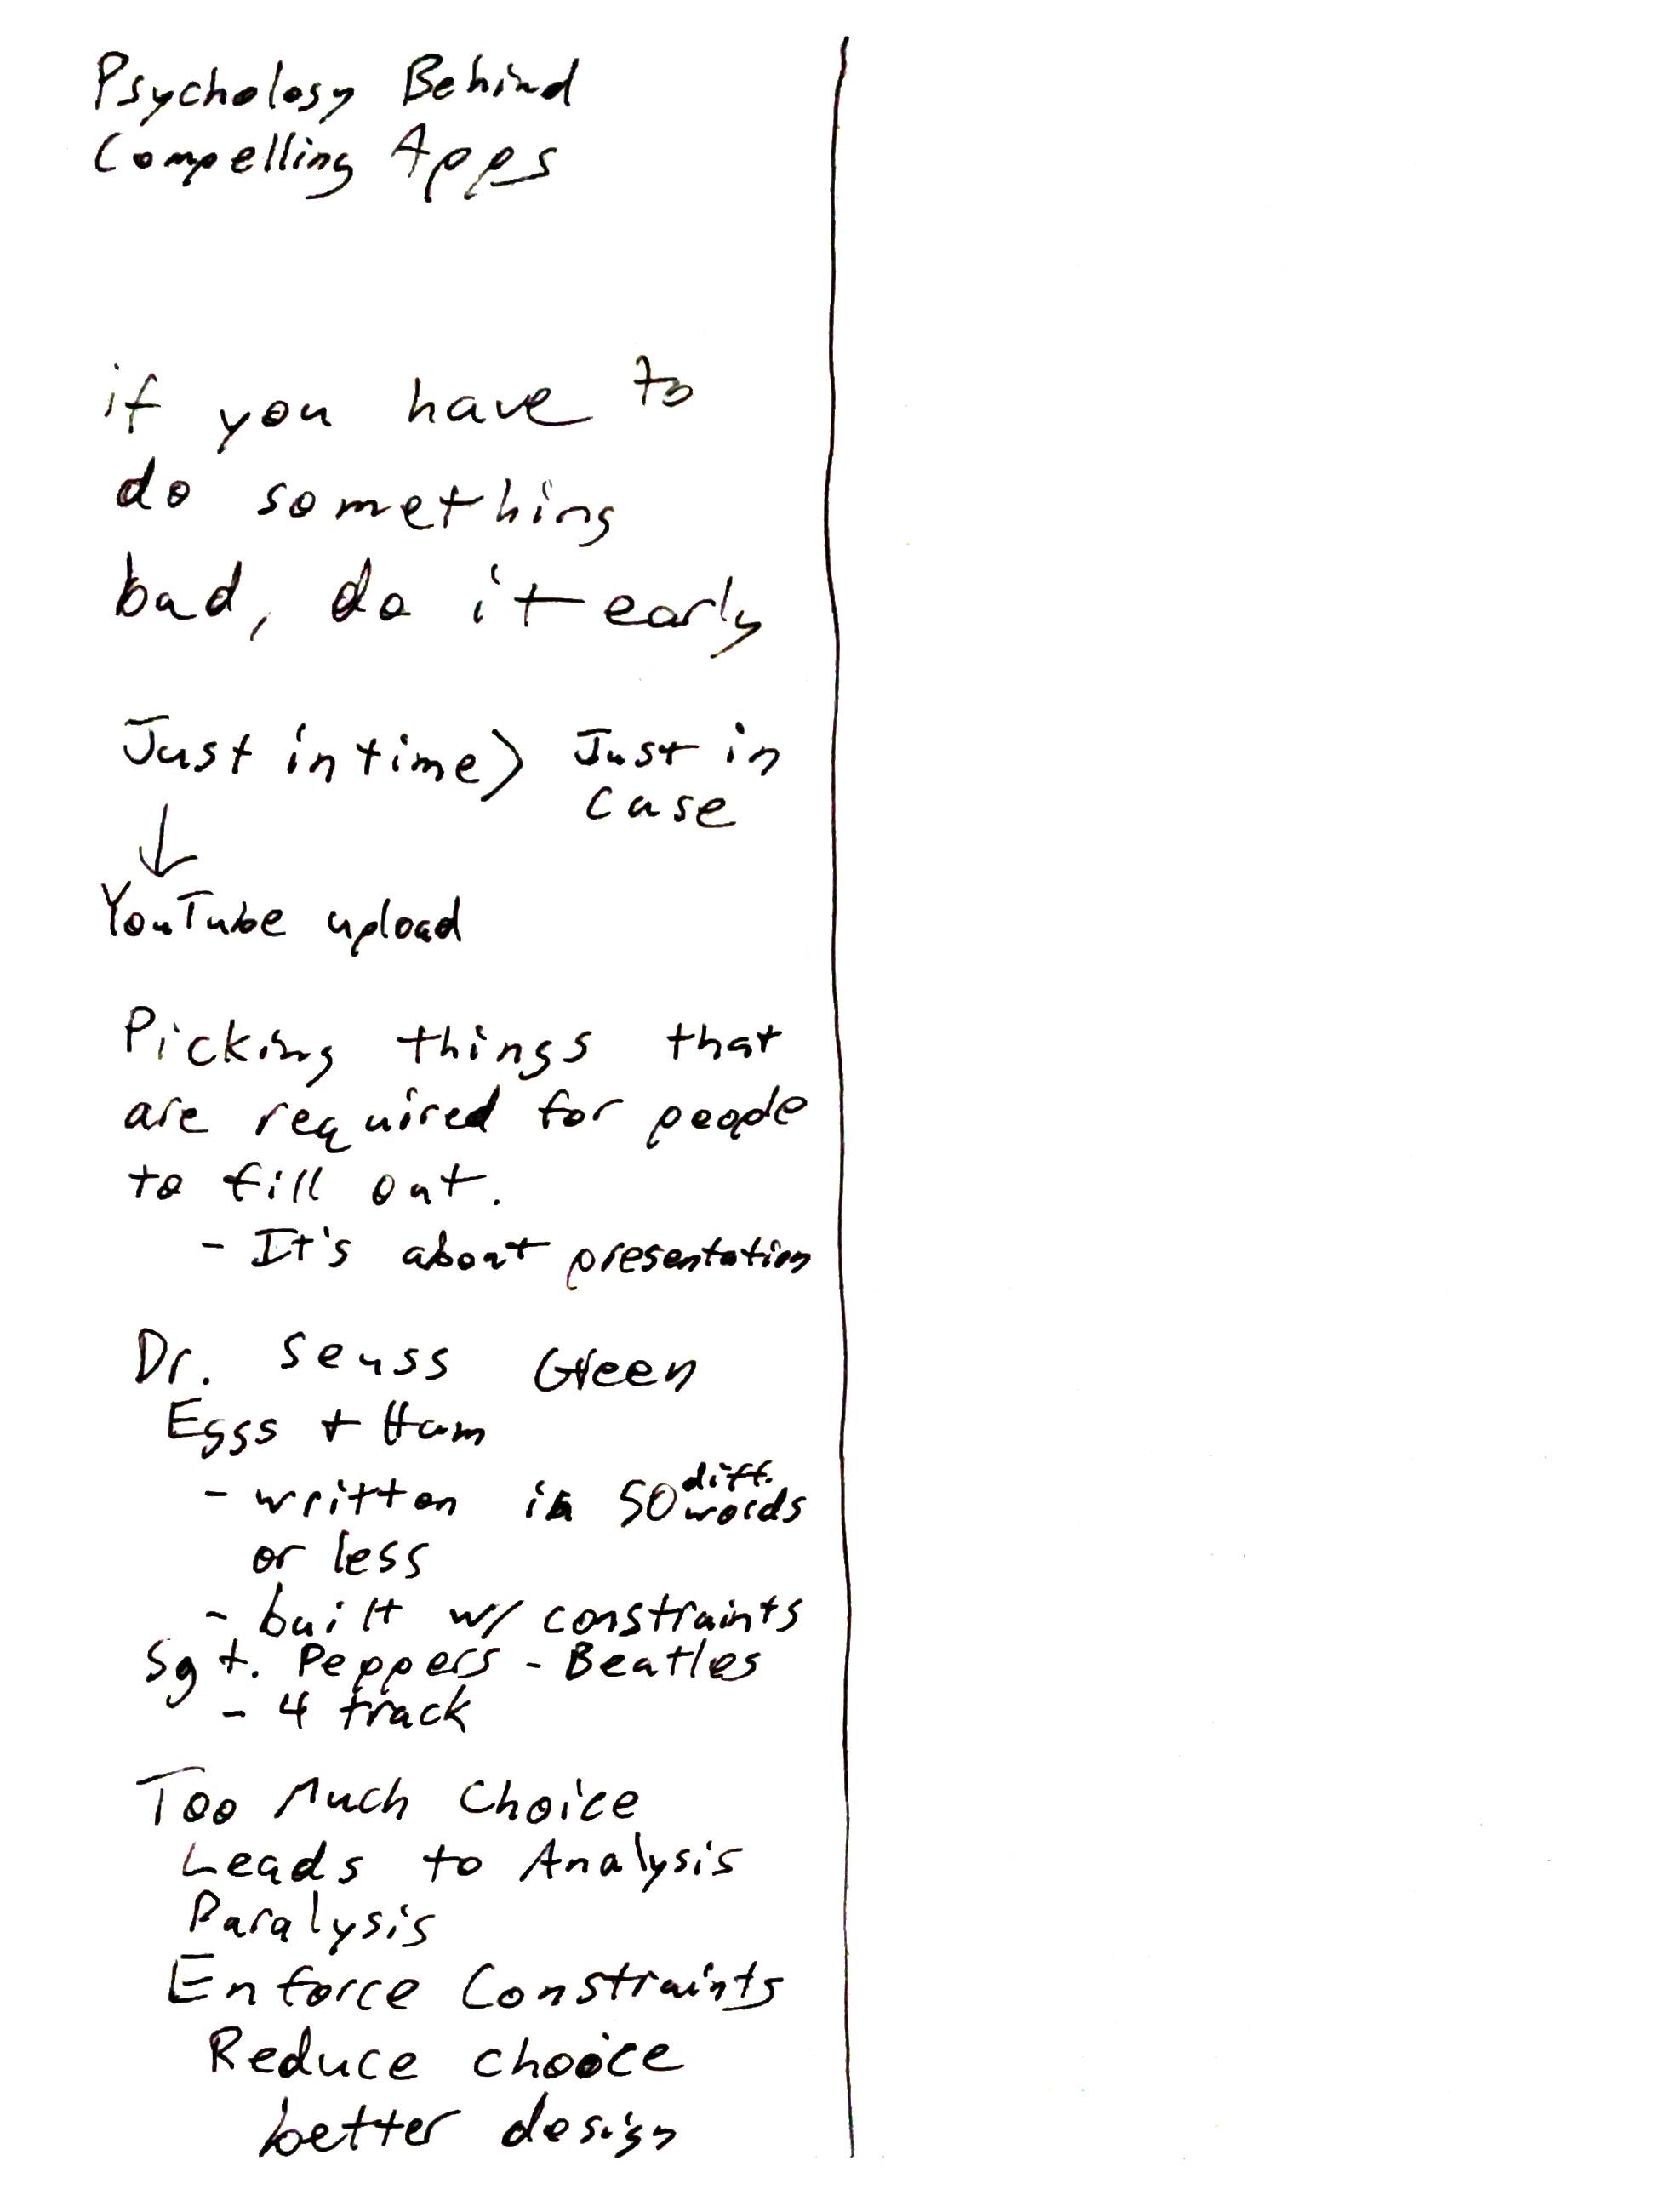 Psychology Behind
Compelling Apps
if you have to
do something
bad, do it early
Just in time > Just in
case
↓
YouTube upload
Picking things that
are required for people
to fill out.
- It's about presentation
Dr. Seuss Green
Eggs + Ham
- written in 50 diff. words
or less
- built w/ constraints
Sgt. Peppers - Beatles
- 4 track
Too Much Choice
Leads to Analysis
Paralysis
Enforce Constraints
Reduce choice
better design